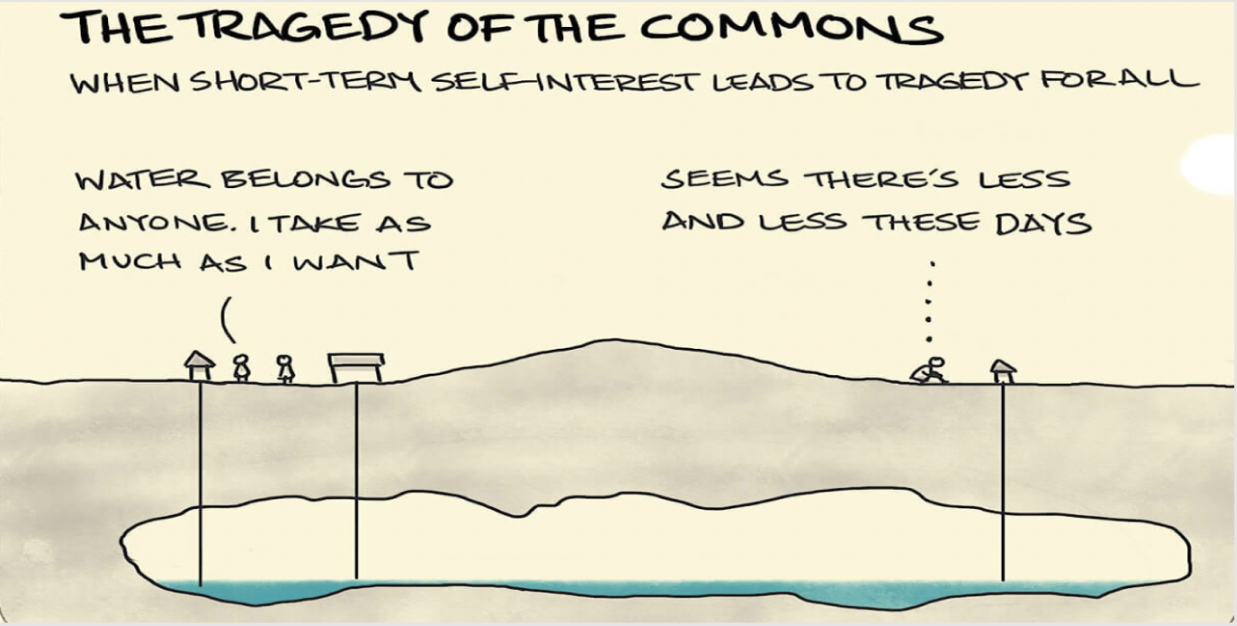 THE TRAGEDY OF THE COMMONS
WHEN SHORT-TERM SELF-INTEREST LEADS TO TRAGEDY FOR ALL
WATER BELONGS TO
ANYONE. I TAKE AS
MUCH AS I WANT
SEEMS THERE'S LESS
AND LESS THESE DAYS